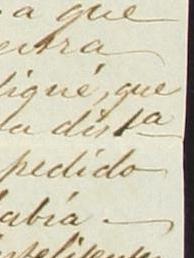 a que
estra
diqué, que
la dista
pedido
había